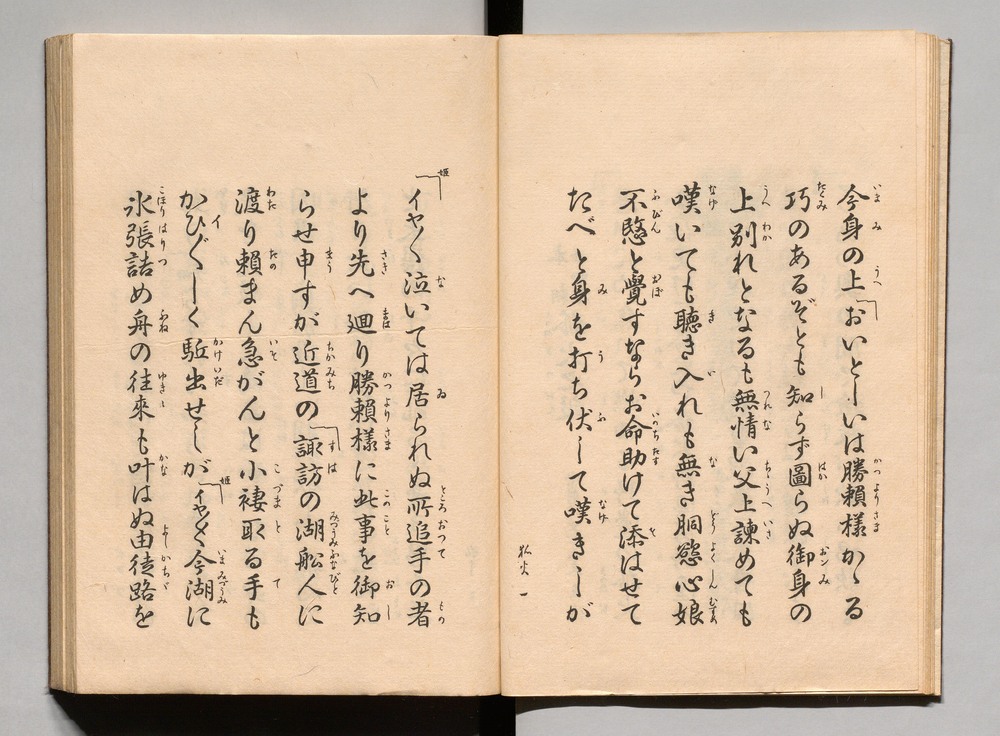 今身の上おいとしいは勝頼様かゝる
巧のあるぞとも知らず圖らぬ御身の
上別れとなるも無情い父上諫めても
嘆いても聴き入れも無き胴慾心娘
不愍と覺すならお命助けて添はせて
たべと身を打ち伏して嘆きしが
狐火 一
姫
イヤ〱泣いては居られぬ所追手の者
より先へ廻り勝頼様に此事を御知
らせ申すが近道の諏訪の湖舩人に
渡り頼まん急がんと小褄取る手も
かひ〲しく駈出せしが
姫
イヤ〱今湖に
氷張詰め舟の往來も叶はぬ由徒路を